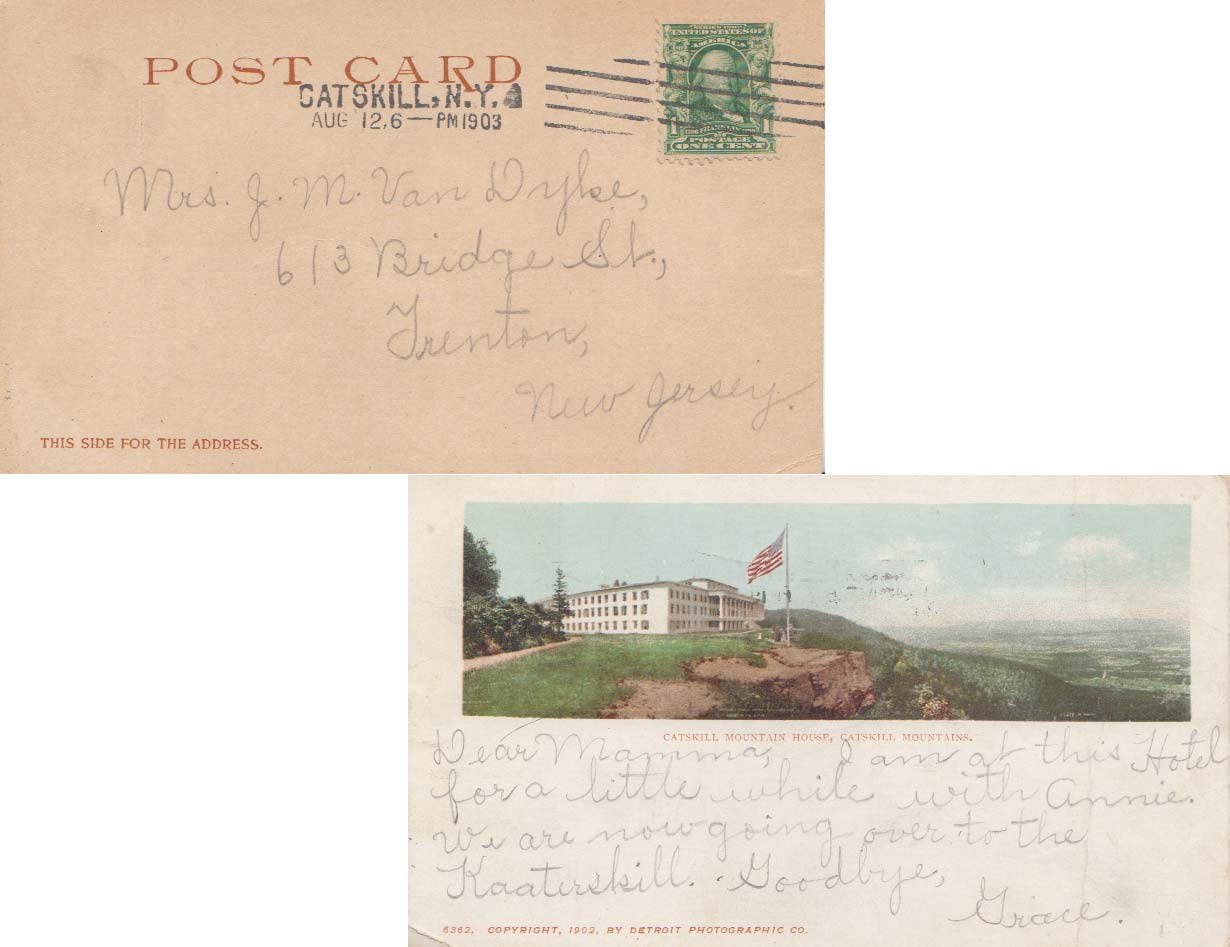 POST CARD
CATSKILL, N.Y.
AUG 12, 6 — PM 1903
UNITED STATES OF
AMERICA
1 1
POSTAGE
ONE CENT
Mrs. J. M. Van Dyke,
613 Bridge St.,
Trenton,
New Jersey.
THIS SIDE FOR THE ADDRESS.
CATSKILL MOUNTAIN HOUSE, CATSKILL MOUNTAINS.
Dear Mamma, I am at this Hotel
for a little while with Annie.
We are now going over to the
Kaaterskill. Goodbye,
Grace.
6362, COPYRIGHT, 1902, BY DETROIT PHOTOGRAPHIC CO.